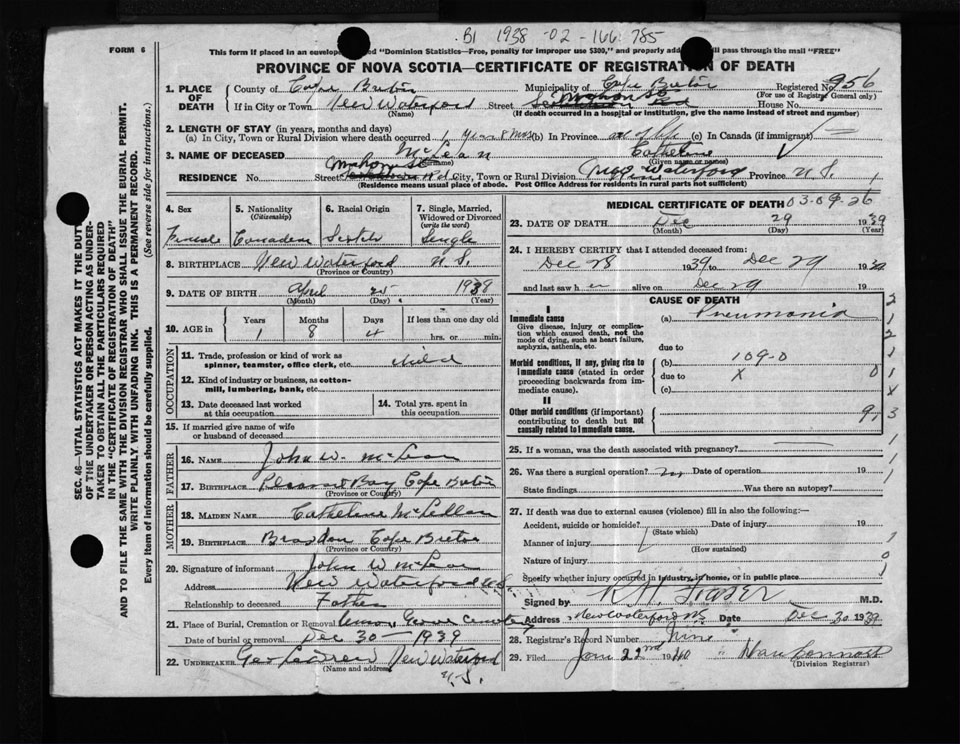 B1 1938 -02 -166 785
FORM 6
This form if placed in an envelope "Dominion Statistics—Free, penalty for improper use $300," and properly will pass through the mail "FREE"
PROVINCE OF NOVA SCOTIA—CERTIFICATE OF REGISTRATION OF DEATH
1. PLACE OF DEATH County of Cape Breton Municipality of Cape Breton Registered No. 956
(For use of Registrar General only)
If in City or Town New Waterford Street Mahon St House No.
(Name) (If death occurred in a hospital or institution, give the name instead of street and number)
2. LENGTH OF STAY (in years, months and days)
(a) In City, Town or Rural Division where death occurred 1 year 8 mos (b) In Province all of life (c) In Canada (if immigrant)
3. NAME OF DECEASED McLean Catheline
(Surname) (Given name or names)
RESIDENCE No. Street Mahon St City, Town or Rural Division New Waterford Province N.S.
(Residence means usual place of abode. Post Office Address for residents in rural parts not sufficient)
4. Sex 5. Nationality (Citizenship) 6. Racial Origin 7. Single, Married, Widowed or Divorced (write the word)
Female Canadian Single
8. BIRTHPLACE New Waterford N.S.
(Province or Country)
9. DATE OF BIRTH April 25 1938
(Month) (Day) (Year)
10. AGE in Years Months Days If less than one day old
1 8 4 hrs. or min.
OCCUPATION
11. Trade, profession or kind of work as spinner, teamster, office clerk, etc. child
12. Kind of industry or business, as cotton-mill, lumbering, bank, etc.
13. Date deceased last worked at this occupation 14. Total yrs. spent in this occupation
15. If married give name of wife or husband of deceased
FATHER
16. NAME John W. McLean
17. BIRTHPLACE Pleasant Bay Cape Breton
(Province or Country)
MOTHER
18. MAIDEN NAME Catheline McLellan
19. BIRTHPLACE Cape Breton
(Province or Country)
20. Signature of informant John W McLean
Address New Waterford N.S.
Relationship to deceased Father
21. Place of Burial, Cremation or Removal Cemetery
Date of burial or removal Dec 30 — 1939
22. UNDERTAKER New Waterford
(Name and address) N.S.
MEDICAL CERTIFICATE OF DEATH
23. DATE OF DEATH Dec 29 1939
(Month) (Day) (Year)
24. I HEREBY CERTIFY that I attended deceased from:
Dec 28 1939 to Dec 29 1939
and last saw h er alive on Dec 29 19
CAUSE OF DEATH
I
Immediate cause (a) Pneumonia
Give disease, injury or complication which caused death, not the mode of dying, such as heart failure, asphyxia, asthenia, etc.
due to
Morbid conditions, if any, giving rise to immediate cause (stated in order proceeding backwards from immediate cause).
(b) 109-0
due to X
(c)
II
Other morbid conditions (if important) contributing to death but not causally related to immediate cause.
25. If a woman, was the death associated with pregnancy?
26. Was there a surgical operation? no Date of operation 19
State findings Was there an autopsy?
27. If death was due to external causes (violence) fill in also the following:—
Accident, suicide or homicide? Date of injury 19
(State which)
Manner of injury
(How sustained)
Nature of injury
Specify whether injury occurred in industry, in home, or in public place
Signed by Fraser M.D.
Address New Waterford NS Date Dec 30 1939
28. Registrar's Record Number Nine
29. Filed Jan 22nd 1940 Dan
(Division Registrar)
SEC. 46—VITAL STATISTICS ACT MAKES IT THE DUTY
OF THE UNDERTAKER OR PERSON ACTING AS UNDER-
TAKER TO OBTAIN ALL THE PARTICULARS REQUIRED
IN THE "CERTIFICATE OF REGISTRATION OF DEATH"
AND TO FILE THE SAME WITH THE DIVISION REGISTRAR WHO SHALL ISSUE THE BURIAL PERMIT.
WRITE PLAINLY WITH UNFADING INK. THIS IS A PERMANENT RECORD.
Every item of information should be carefully supplied. (See reverse side for instructions.)